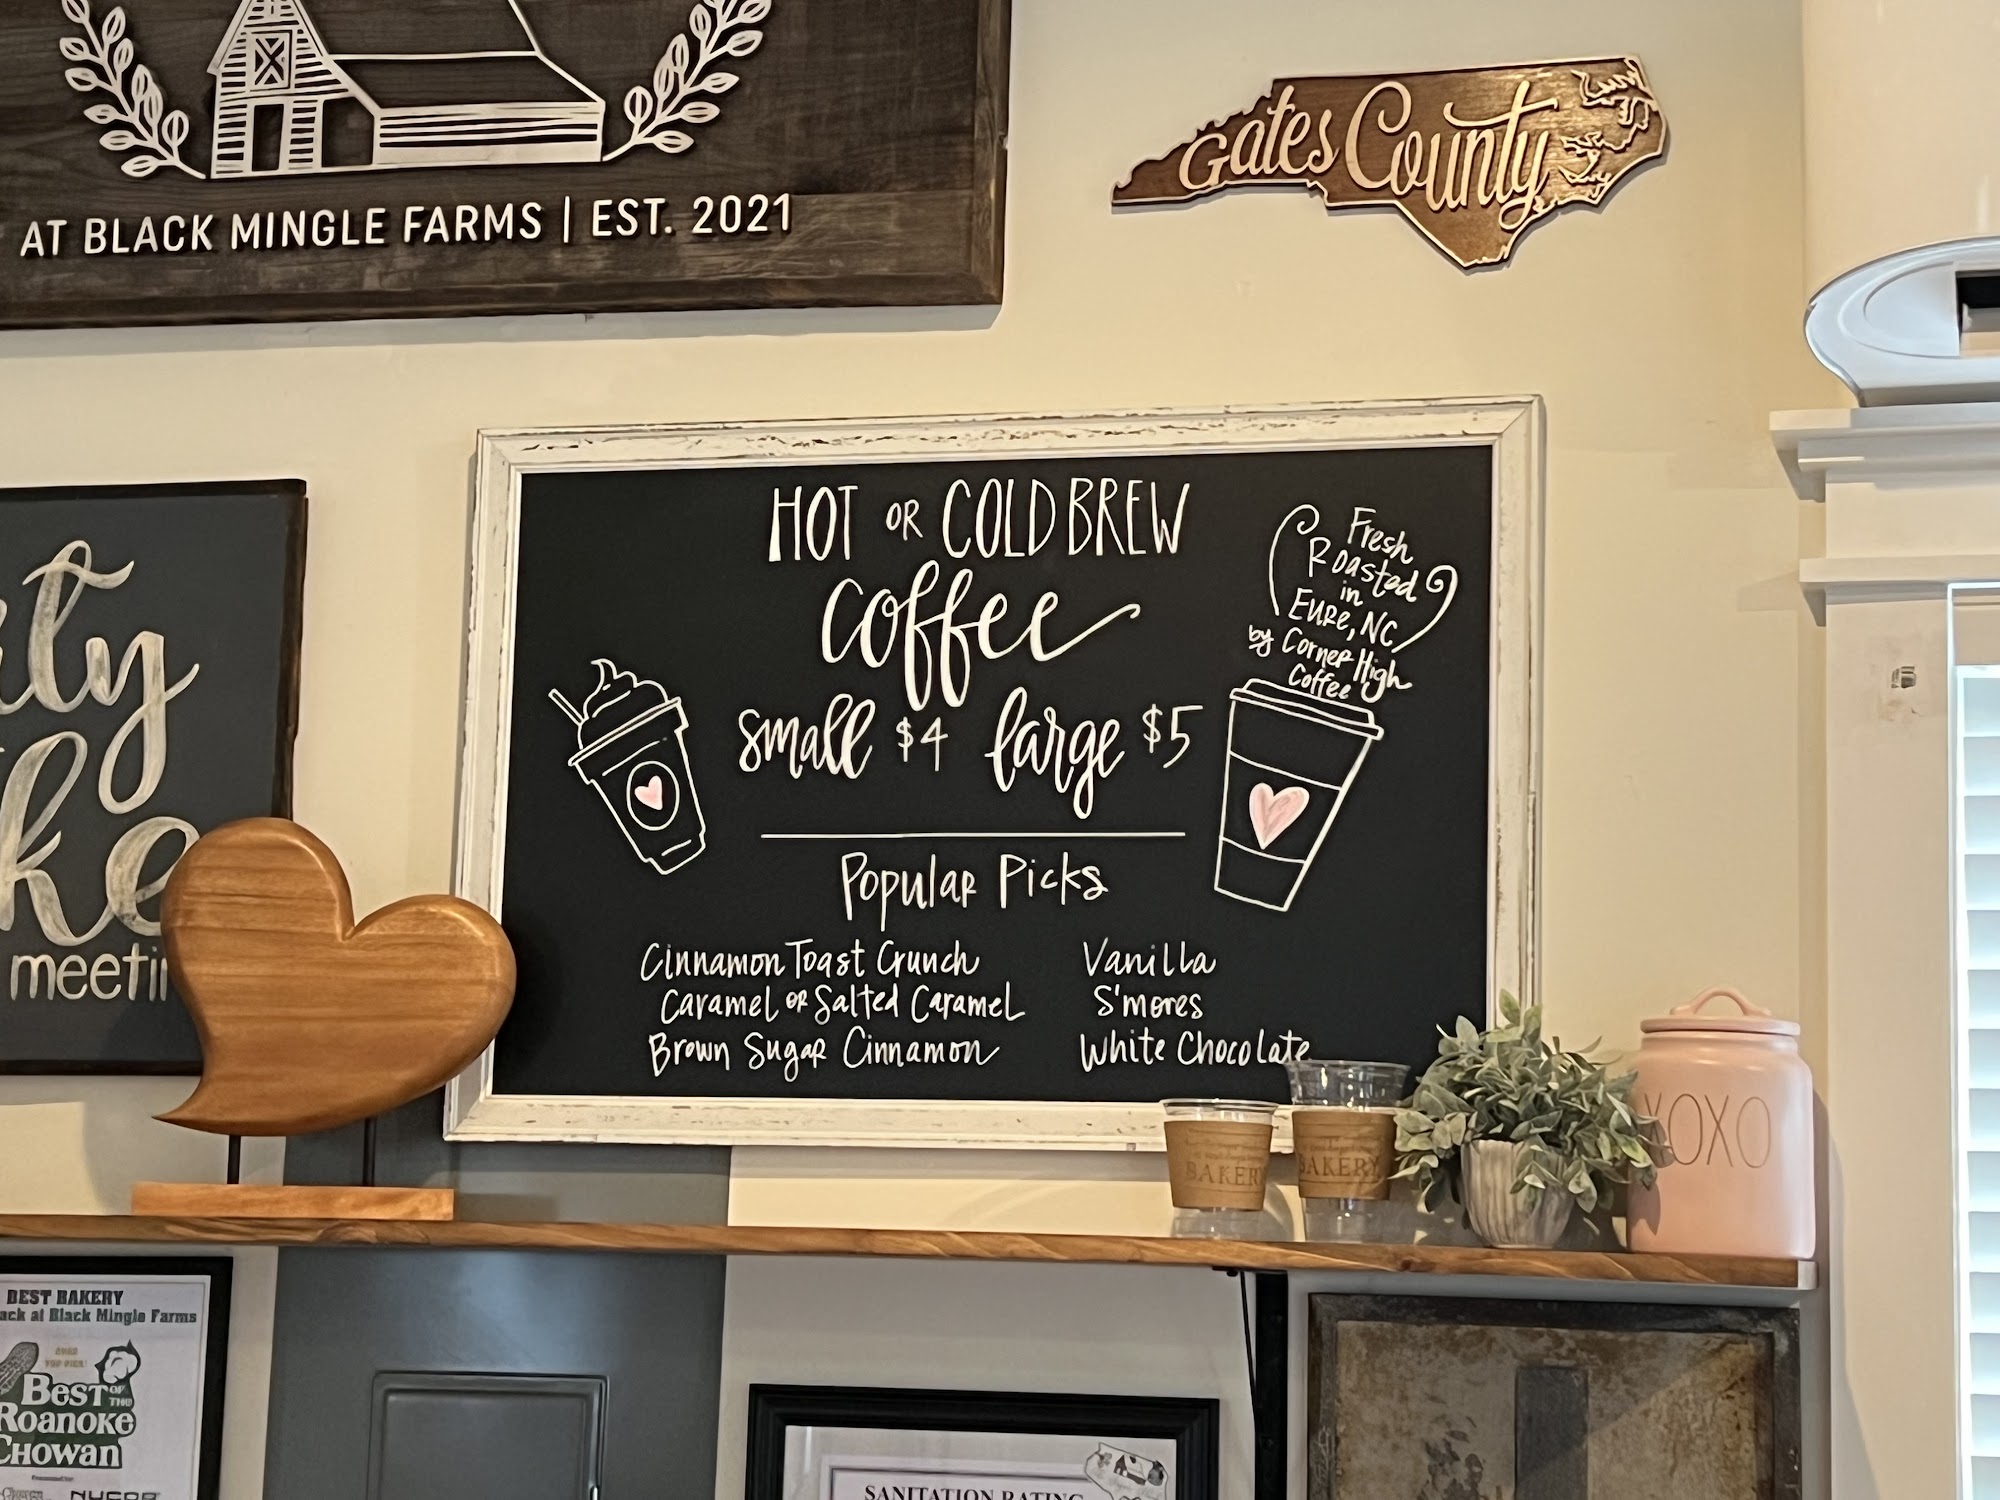 AT BLACK MINGLE FARMS | EST. 2021
Gates County
HOT OR COLD BREW
coffee
small $4 large $5
Fresh
Roasted
in
Eure, NC
by Corner High
Coffee
Popular Picks
Cinnamon Toast Crunch
Caramel or Salted Caramel
Brown Sugar Cinnamon
Vanilla
S'mores
White Chocolate
meeti
BAKERY
BAKERY
XOXO
BEST BAKERY
ack at Black Mingle Farms
BEST OF THE
ROANOKE
CHOWAN
SANITATION RATING